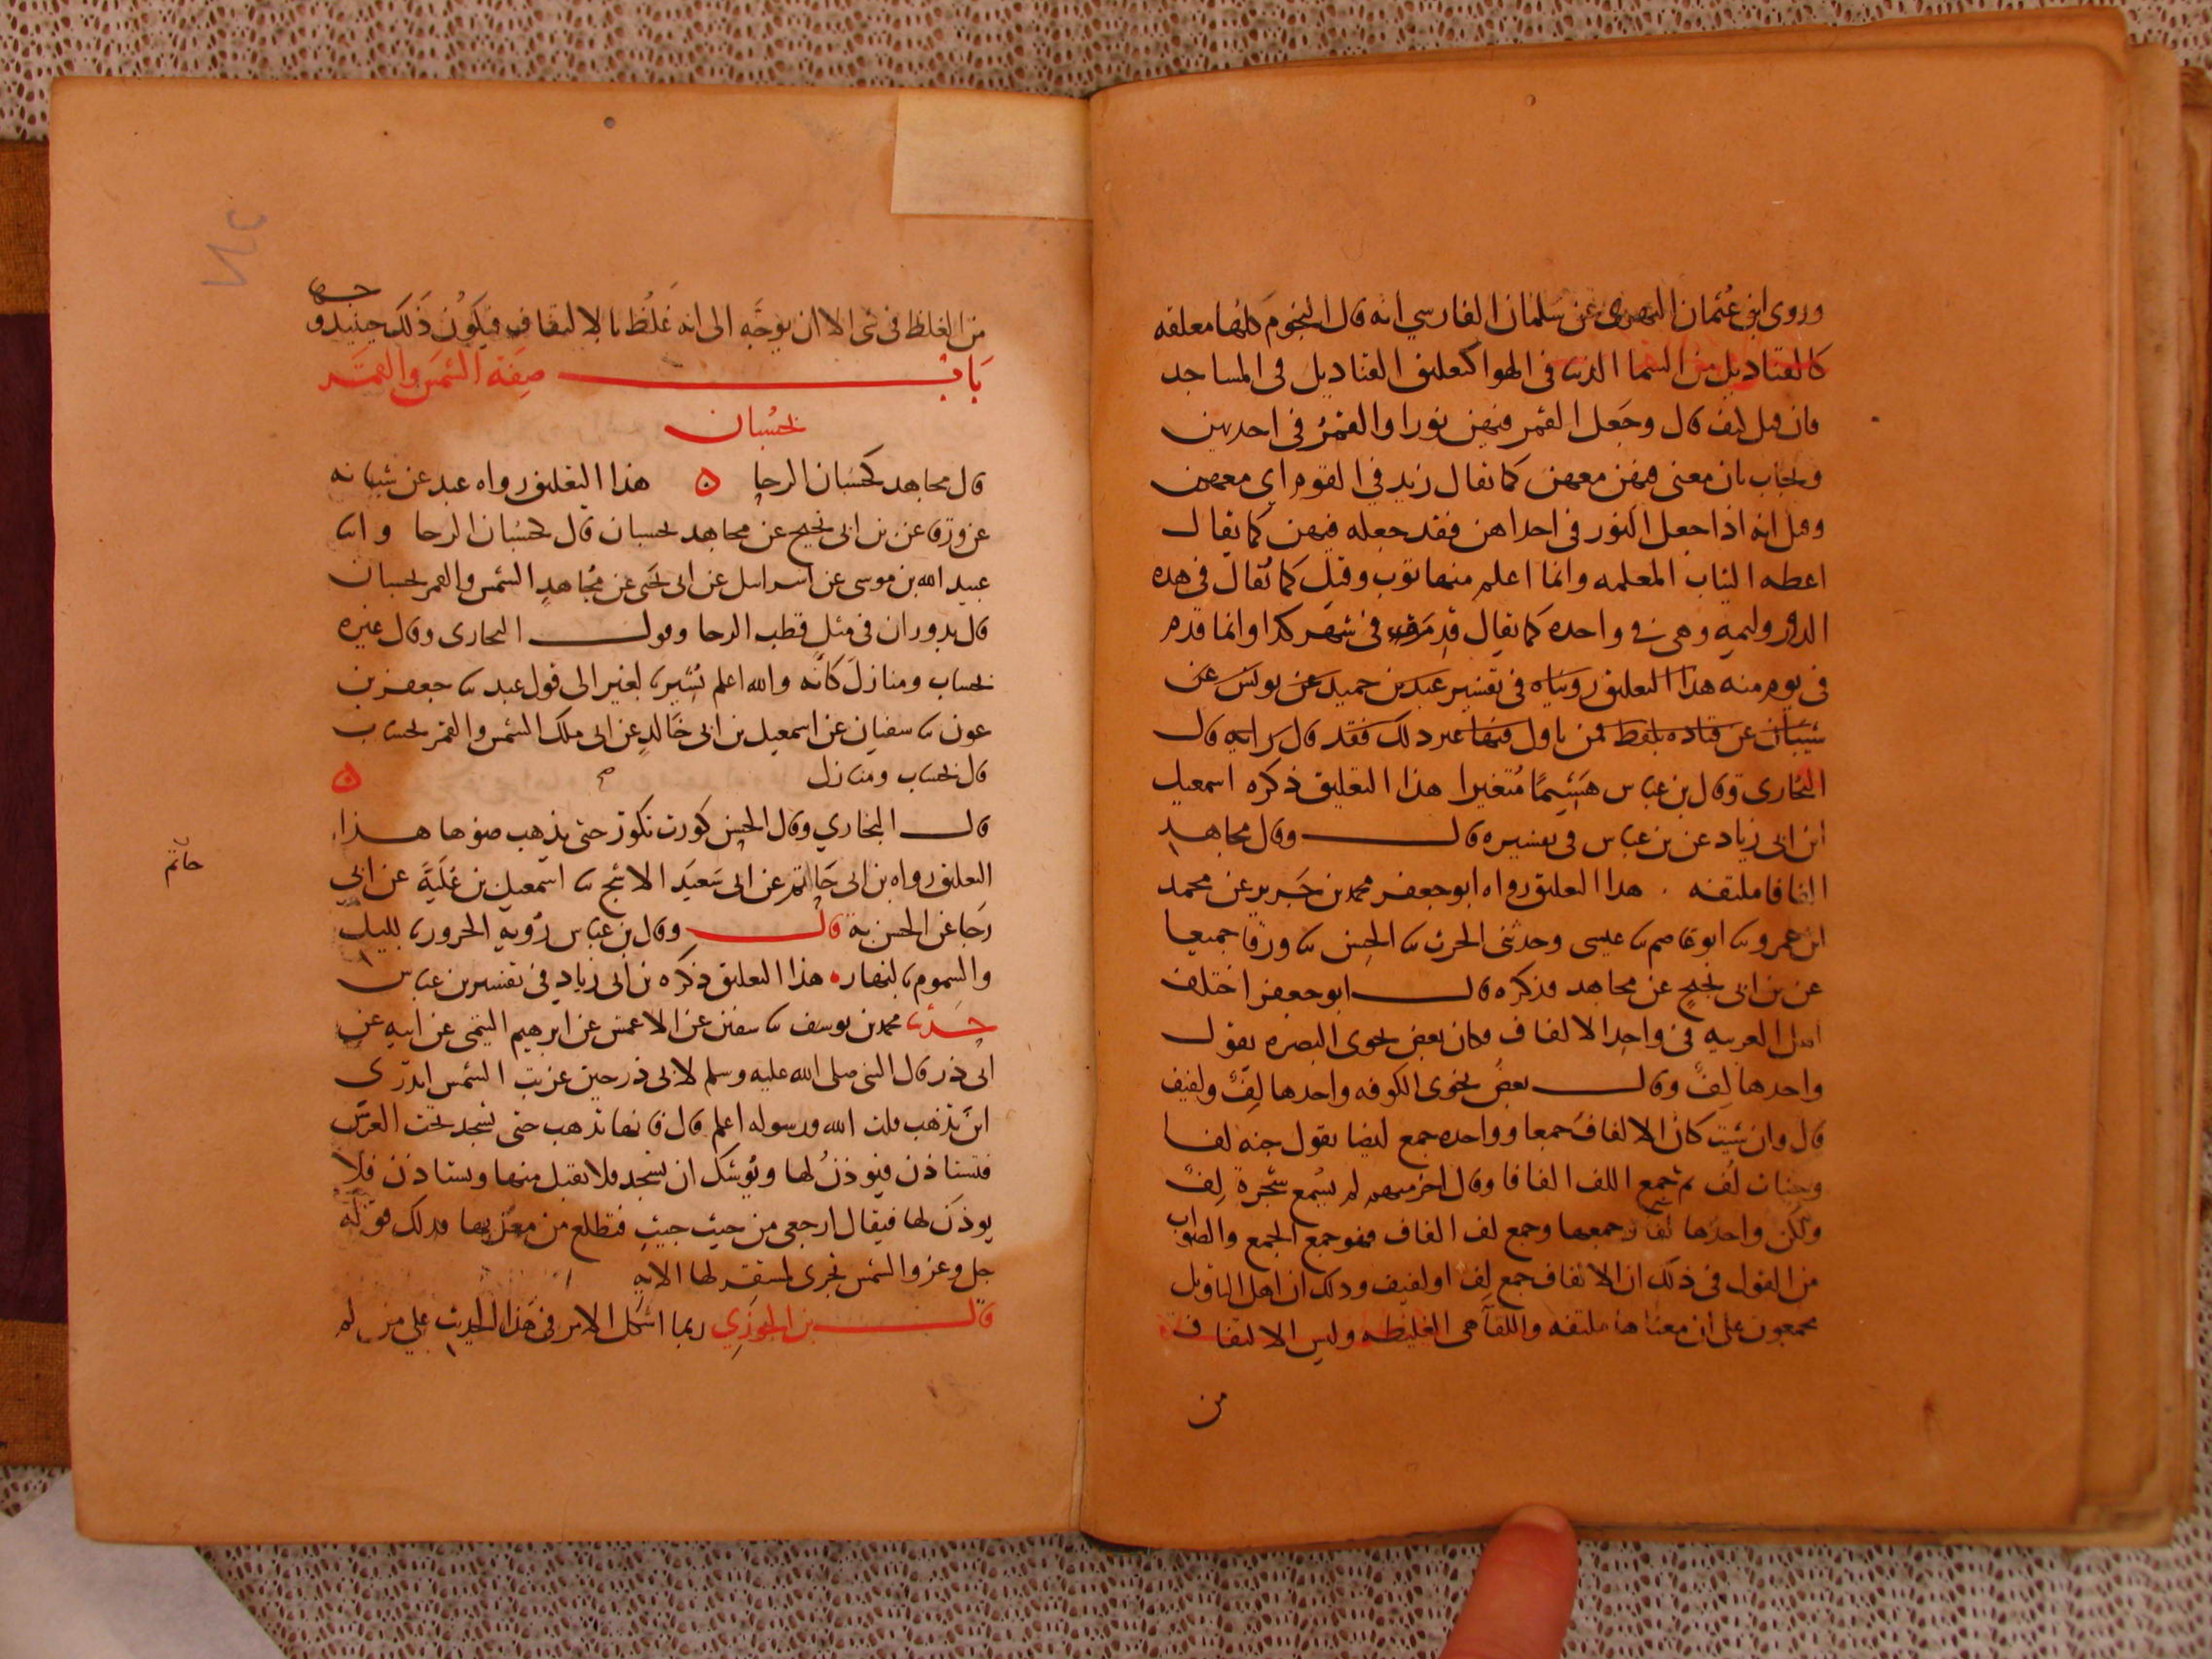 وروى ابو عثمان النهدي عن سلمان الفارسي انه قال النجوم كلها معلقه
كالقناديل من السما الدنيا في الهوا كتعليق القناديل في المساجد
فان قيل كيف قال وجعل القمر فيهن نورا والقمر في احديهن
ويجاب بان معنى فيهن معهن كما يقال زيد في القوم اي معهم
وقيل انه اذا جعل النور في احداهن فقد جعله فيهن كما يقال
اعطه الثياب المعلمه وانما اعلم منها ثوب وقيل كما يقال في هذه
الدور وليمه وهي في واحده كما يقال قدم في شهر كذا وانما قدم
في يوم منه هذا التعليق رويناه في تفسير عبد بن حميد عن يونس عن
شيبان عن قتاده بلفظ فمن تاول فيها غير ذلك فقد قال برايه قال
البخاري وقال بن عباس هشيما متغيرا هذا التعليق ذكره اسمعيل
ابن ابي زياد عن بن عباس في تفسيره قال وقال مجاهد
الفافا ملتفه هذا التعليق رواه ابو جعفر محمد بن جرير عن محمد
ابن عمرو ثنا ابو عاصم ثنا عيسى وحدثني الحرث ثنا الحسن ثنا ورقا جميعا
عن بن ابي نجيح عن مجاهد فذكره قال ابو جعفر اختلف
اهل العربيه في واحد الالفاف فكان بعض نحوي البصره يقول
واحدها لف وقال بعض نحوي الكوفه واحدها لف ولفيف
قال وان شيت كان الالفاف جمعا وواحده جمع ايضا يقول جنه لفا
وجنات لف ثم تجمع اللف الفافا وقال اخر منهم لم يسمع شجرة لف
ولكن واحدها لفا وجمعها وجمع لف الفاف فهو جمع الجمع والصواب
من القول في ذلك ان الالفاف جمع لف او لفيف وذلك ان اهل التاويل
مجمعون على ان معناها ملتفه واللفا هي الغليظه وليس الالتفاف
من
من الغلظ في شي الا ان يوجه الى انه غلظ بالالتفاف فيكون ذلك حينيذ وجها
باب صفة الشمس والقمر
بحسبان
قال مجاهد كحسبان الرحا ه هذا التعليق رواه عبد عن شبابه
عن ورقا عن بن ابي نجيح عن مجاهد بحسبان قال كحسبان الرحا وانبا
عبيد الله بن موسى عن اسرايل عن ابي يحيى عن مجاهد الشمس والقمر بحسبان
قال يدوران في مثل قطب الرحا وقول البخاري وقال غيره
بحساب ومنازل كانه والله اعلم يشير بالغير الى قول عبد ثنا جعفر بن
عون ثنا سفيان عن اسمعيل بن ابي خالد عن ابي ملك الشمس والقمر بحسبان
قال بحساب ومنازل ه
قال البخاري وقال الحسن كورت تكور حتى يذهب ضوها هذا
التعليق رواه بن ابي حاتم عن ابي سعيد الاشج ثنا اسمعيل بن علية عن ابي
حاتم
رجا عن الحسن به قال وقال بن عباس رؤبه الحرور بالليل
والسموم بالنهار هذا التعليق ذكره بن ابي زياد في تفسير بن عباس
حدثنا محمد بن يوسف ثنا سفين عن الاعمش عن ابرهيم التيمي عن ابيه عن
ابي ذر قال النبي صلى الله عليه وسلم لابي ذر حين غربت الشمس اتدري
اين تذهب قلت الله ورسوله اعلم قال فانها تذهب حتى تسجد تحت العرش
فتستاذن فيوذن لها ويوشك ان تسجد فلا تقبل منها وتستاذن فلا
يوذن لها فيقال ارجعي من حيث جيت فتطلع من مغربها فذلك قوله
جل وعز والشمس تجري لمستقر لها الايه
قال بن الجوزي ربما اشكل الامر في هذا الحديث على من لم